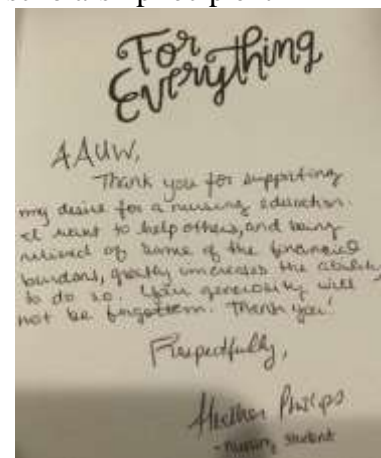 For
Everything
AAUW,
Thank you for supporting
my desire for a nursing education.
I want to help others, and being
relieved of some of the financial
burdens, greatly increases the ability
to do so. Your generosity will
not be forgotten. Thank you!
Respectfully,
Heather
- nursing student